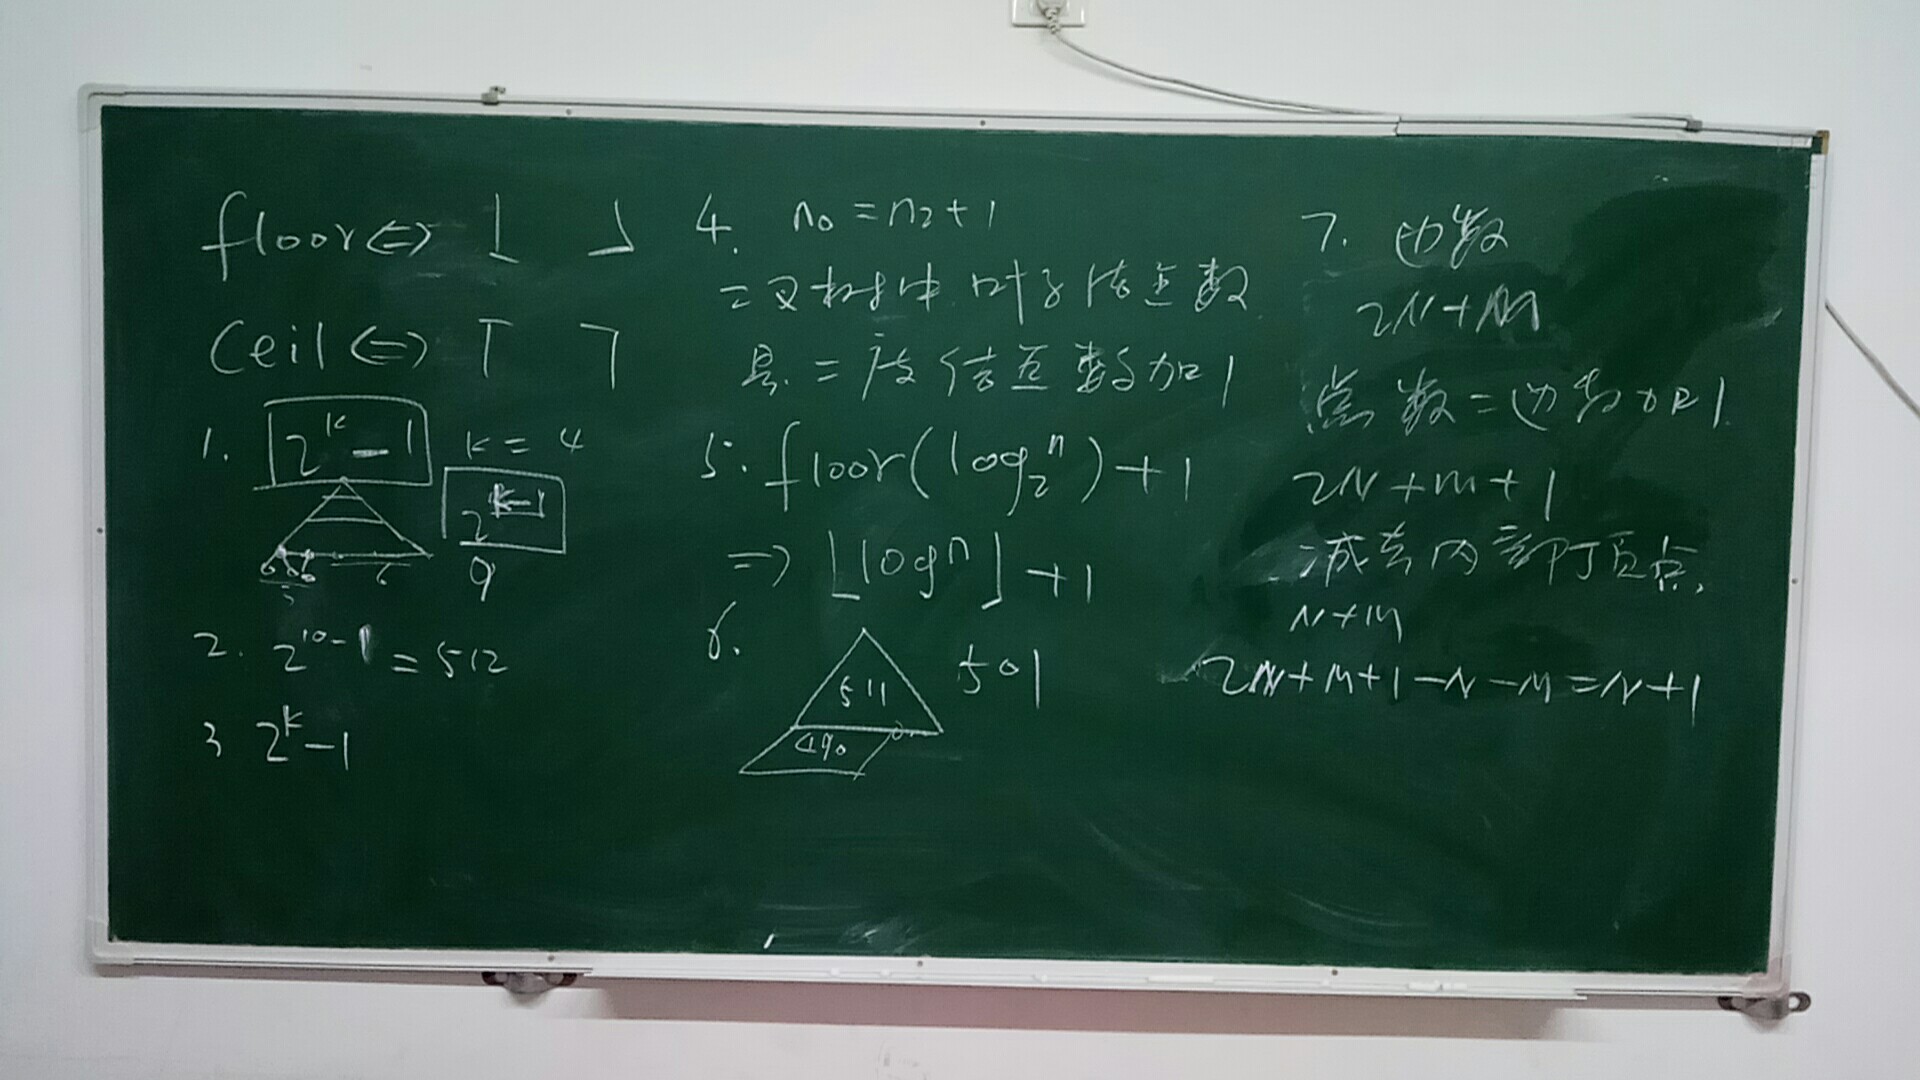 floor⇔⌊ ⌋
ceil⇔⌈ ⌉
1. 2^k-1 k=4
2^{k-1}
9
2. 2^{10-1}=512
3 2^k-1
4. n₀=n₂+1
二叉树中叶子结点数
是二度结点数加1
5. floor(log₂ⁿ)+1
⇒⌊logⁿ⌋+1
6. 511 501
490
7. 边数
2N+M
点数=边数加1
2N+M+1
减去内部顶点,
N+M
2N+M+1-N-M=N+1